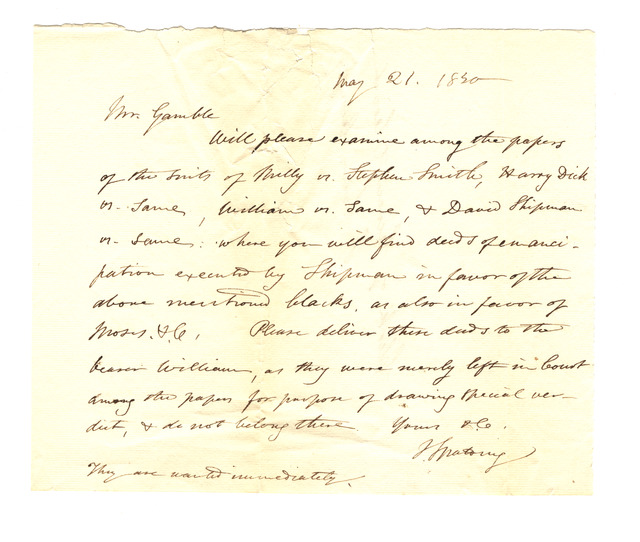 May 21. 1830
Mr. Gamble
Will please examine among the papers
of the suits of Milly vs. Stephen Smith, Harry Dick
vs. Same, William vs. Same, & David Shipman
vs. Same: where you will find deeds of emanci-
pation executed by Shipman in favor of the
above mentioned blacks, as also in favor of
Moses, &c. Please deliver these deeds to the
bearer William, as they were merely left in Court
among the papers for purpose of drawing special ver-
dict, & do not belong there. Yours &c.
They are wanted immediately.